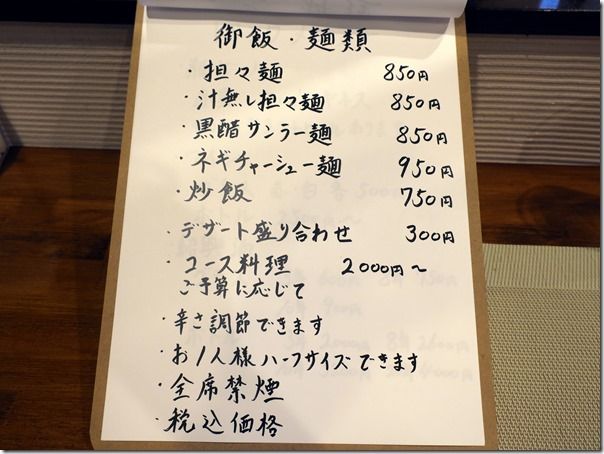 御飯・麺類
・担々麺 850円
・汁無し担々麺 850円
・黒醋サンラー麺 850円
・ネギチャーシュー麺 950円
・炒飯 750円
・デザート盛り合わせ 300円
・コース料理 2000円〜
ご予算に応じて
・辛さ調節できます
・お1人様ハーフサイズできます
・全席禁煙
・税込価格